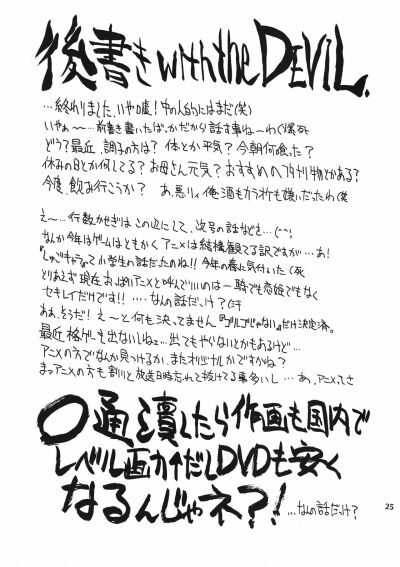 後書き with the DEVIL.
…終わりました、いや嘘!中の人的にはまだ(笑)
いやぁ〜…前書き書いたばっかだから話す事ね〜わ(爆死
どう?最近、調子の方は?体とか平気?今朝何喰った?
休みの日とか何してる?お母さん元気?おすすめの新刊物とかある?
今度、飲み行こうか? あ、悪リィ俺酒もカラオケも嫌いだったわ(笑
え〜…行数かせぎはこの辺にして、次号の話などを…(^^;
なんか今年はゲームはともかくアニメは結構観てる訳ですが…あ!
『しゅごキャラ』って小学生の話だったのね!!今年の春に気付いた(死
とりあえず現在おっぱいアニメと呼んでいいのは一騎でも恋姫でもなく
セキレイだけです!!…なんの話だっけ?(汗
ああ、そうだ!え〜と何も決ってません『ブルゴじゃない』だけ決定済。
最近格ゲーも出ないしねェ…出てもやらないとかもあるけど…
アニメの方でなんか見つけるか、またオリジナルかですかね?
まっアニメの方も割りと放送日時忘れて抜けてる事多いし…あ、アニメってさ
〇通潰したら作画も国内で
レベル画力↑だしDVDも安く
なるんじゃネ?!
…なんの話だっけ?
25